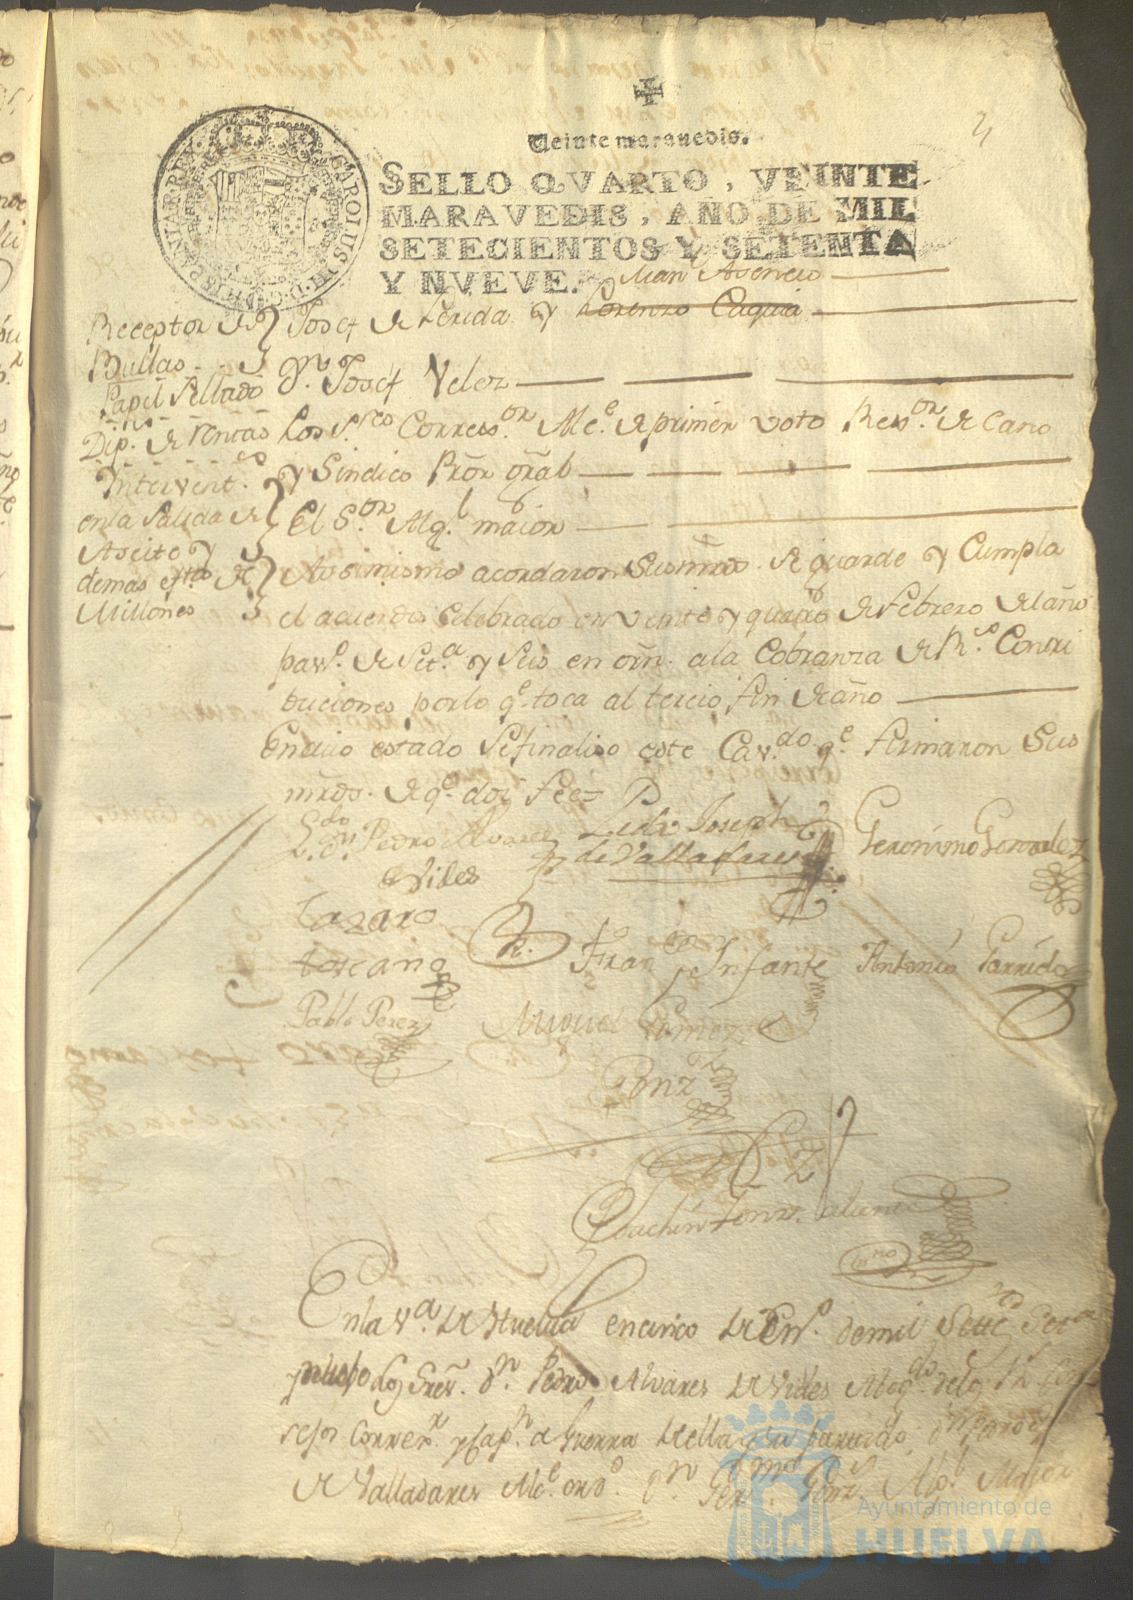 Veinte maravedis.
SELLO QVARTO, VEINTE
MARAVEDIS, AÑO DE MIL
SETECIENTOS Y SETENTA
Y NVEVE.
CAROLUS III D.G. HISPANIAR. REX
Juan Asencio
Receptor de Josef de Lerida y Lorenzo Caquia
Bullas
Papel Sellado Dn. Josef Velez
Dip.s de rentas Los S.res Correg.or Alc.e de primer voto Reg.or de Cano
y Sindico Pror gral
Intervent.es
en la salida de El S.or Alg.l maior
Aseite y
demas eftos de Asimismo acordaron sus mrds. se guarde y Cumpla
Millones el acuerdo celebrado en veinte y quatro de Febrero del año
pas.o de Set.a y Seis en orn. a la Cobranza de R.s Contri
buciones por lo q.e toca al tercio fin de año
En cuio estado se finaliso este Cav.do q.e firmaron Sus
mrds. de q.e doi fee
L.do Dn. Pedro Alvarez
Vides
Pedro Joseph
de Valladares
Geronimo Gonzalez
Lazaro
toscano
Fran.co Infante
Antonio Garrido
Pablo Perez
Miguel Gomez
Gonz
En la V.a de Huelva en cinco de En.o de mil Sett.os Set.a
y nueve los Sres. Dn. Pedro Alvares de Vides Abog.do de los R.s Con
sejos Correg.r y Cap.n a Guerra de ella y su partido Dn. Pedro
de Valladares Alc.e ord.o Dn. Ger.mo Gonz.s Alg.l Maior
Ayuntamiento de
HUELVA